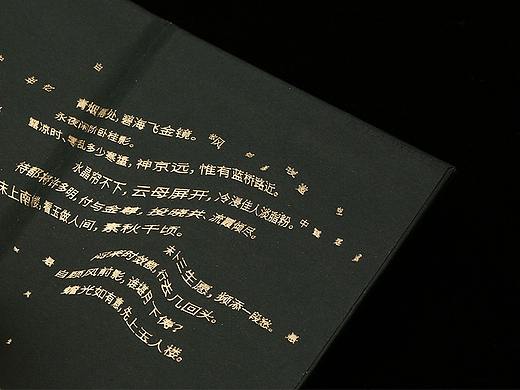 青烟幂处,碧海飞金镜。
永夜闲阶卧桂影。
露凉时、零乱多少寒螀,神京远,惟有蓝桥路近。
水晶帘不下,云母屏开,冷浸佳人淡脂粉。
待都将许多明,付与金尊,投晓共、流霞倾尽。
床上南楼,看玉做人间,素秋千顷。
未卜三生愿,频添一段愁。
闷来时敛额,行去几回头。
自顾风前影,谁堪月下俦?
蟾光如有意,先上玉人楼。